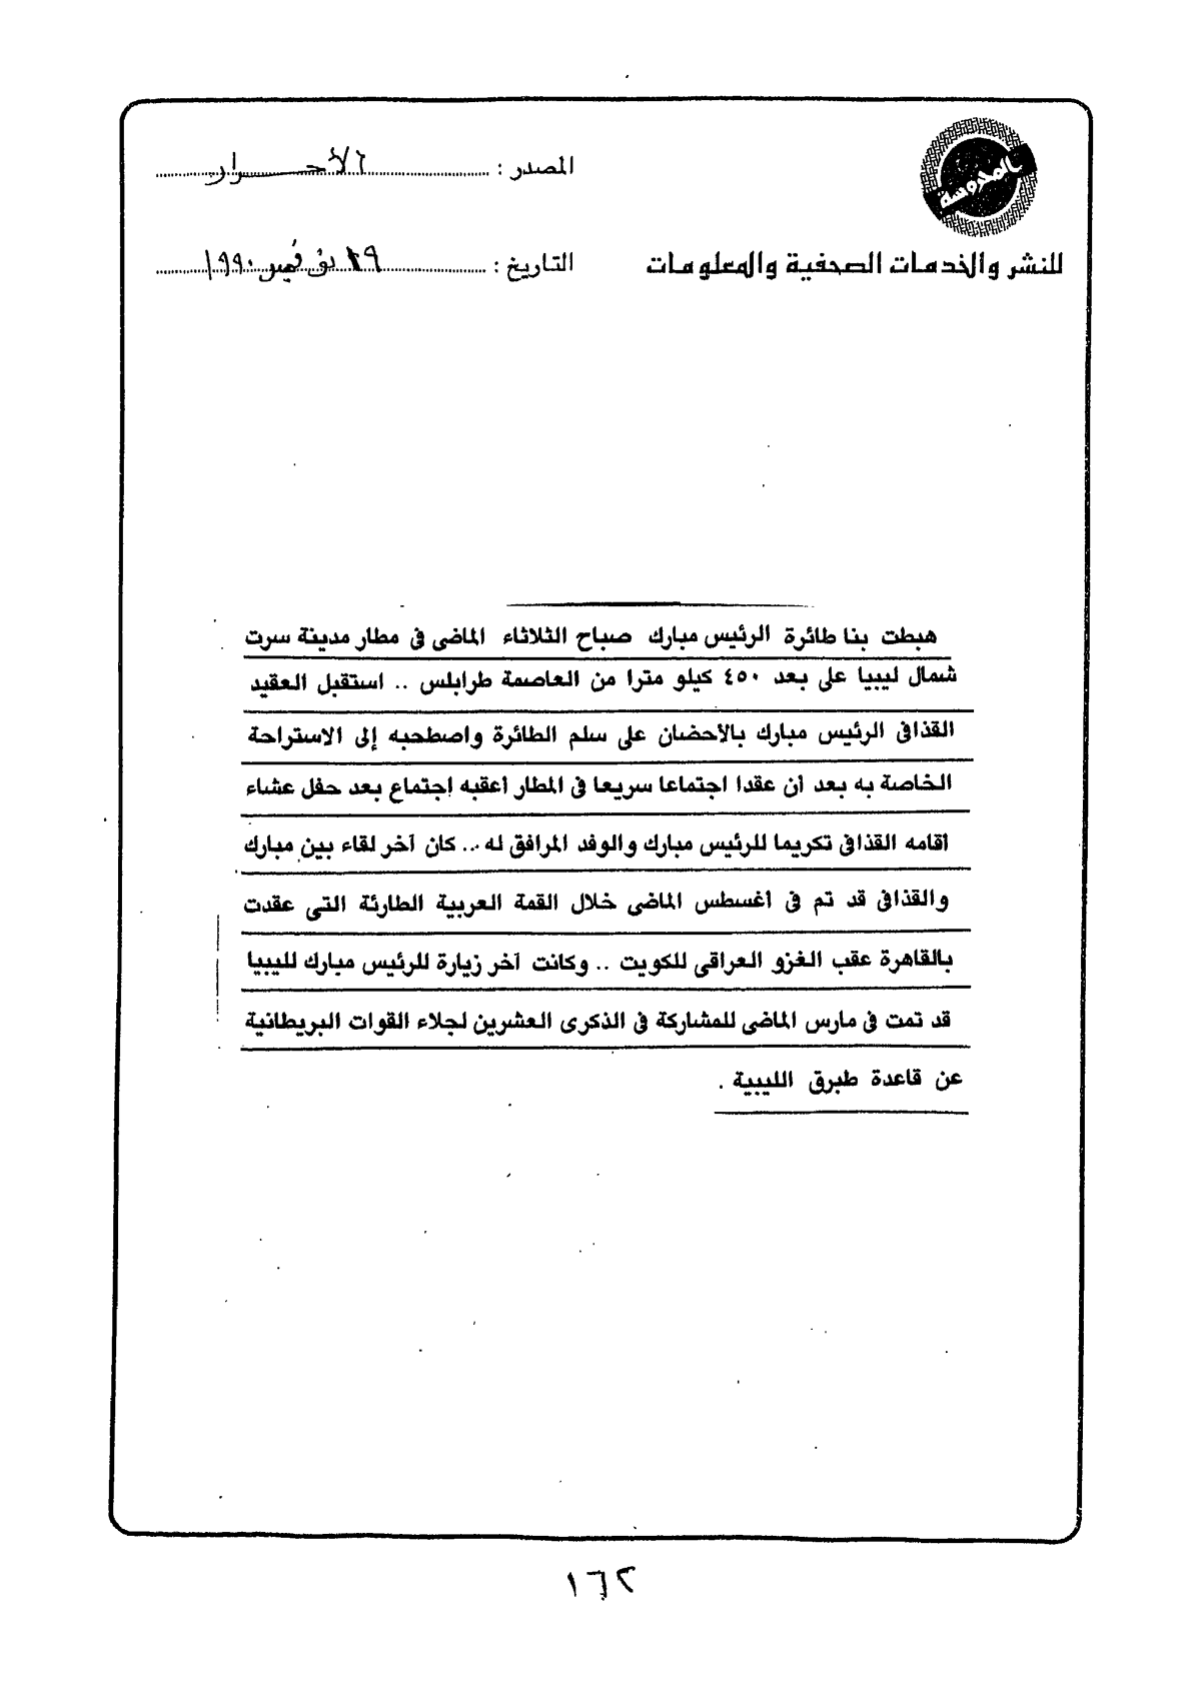 المصدر : الأحرار
التاريخ : ٢٩ نوفمبر ١٩٩٠
للنشر والخدمات الصحفية والمعلومات
هبطت بنا طائرة الرئيس مبارك صباح الثلاثاء الماضى فى مطار مدينة سرت
شمال ليبيا على بعد ٤٥٠ كيلو مترا من العاصمة طرابلس .. استقبل العقيد
القذافى الرئيس مبارك بالأحضان على سلم الطائرة واصطحبه إلى الاستراحة
الخاصة به بعد أن عقدا اجتماعا سريعا فى المطار أعقبه إجتماع بعد حفل عشاء
أقامه القذافى تكريما للرئيس مبارك والوفد المرافق له .. كان آخر لقاء بين مبارك
والقذافى قد تم فى أغسطس الماضى خلال القمة العربية الطارئة التى عقدت
بالقاهرة عقب الغزو العراقى للكويت .. وكانت آخر زيارة للرئيس مبارك لليبيا
قد تمت فى مارس الماضى للمشاركة فى الذكرى العشرين لجلاء القوات البريطانية
عن قاعدة طبرق الليبية .
١٦٢